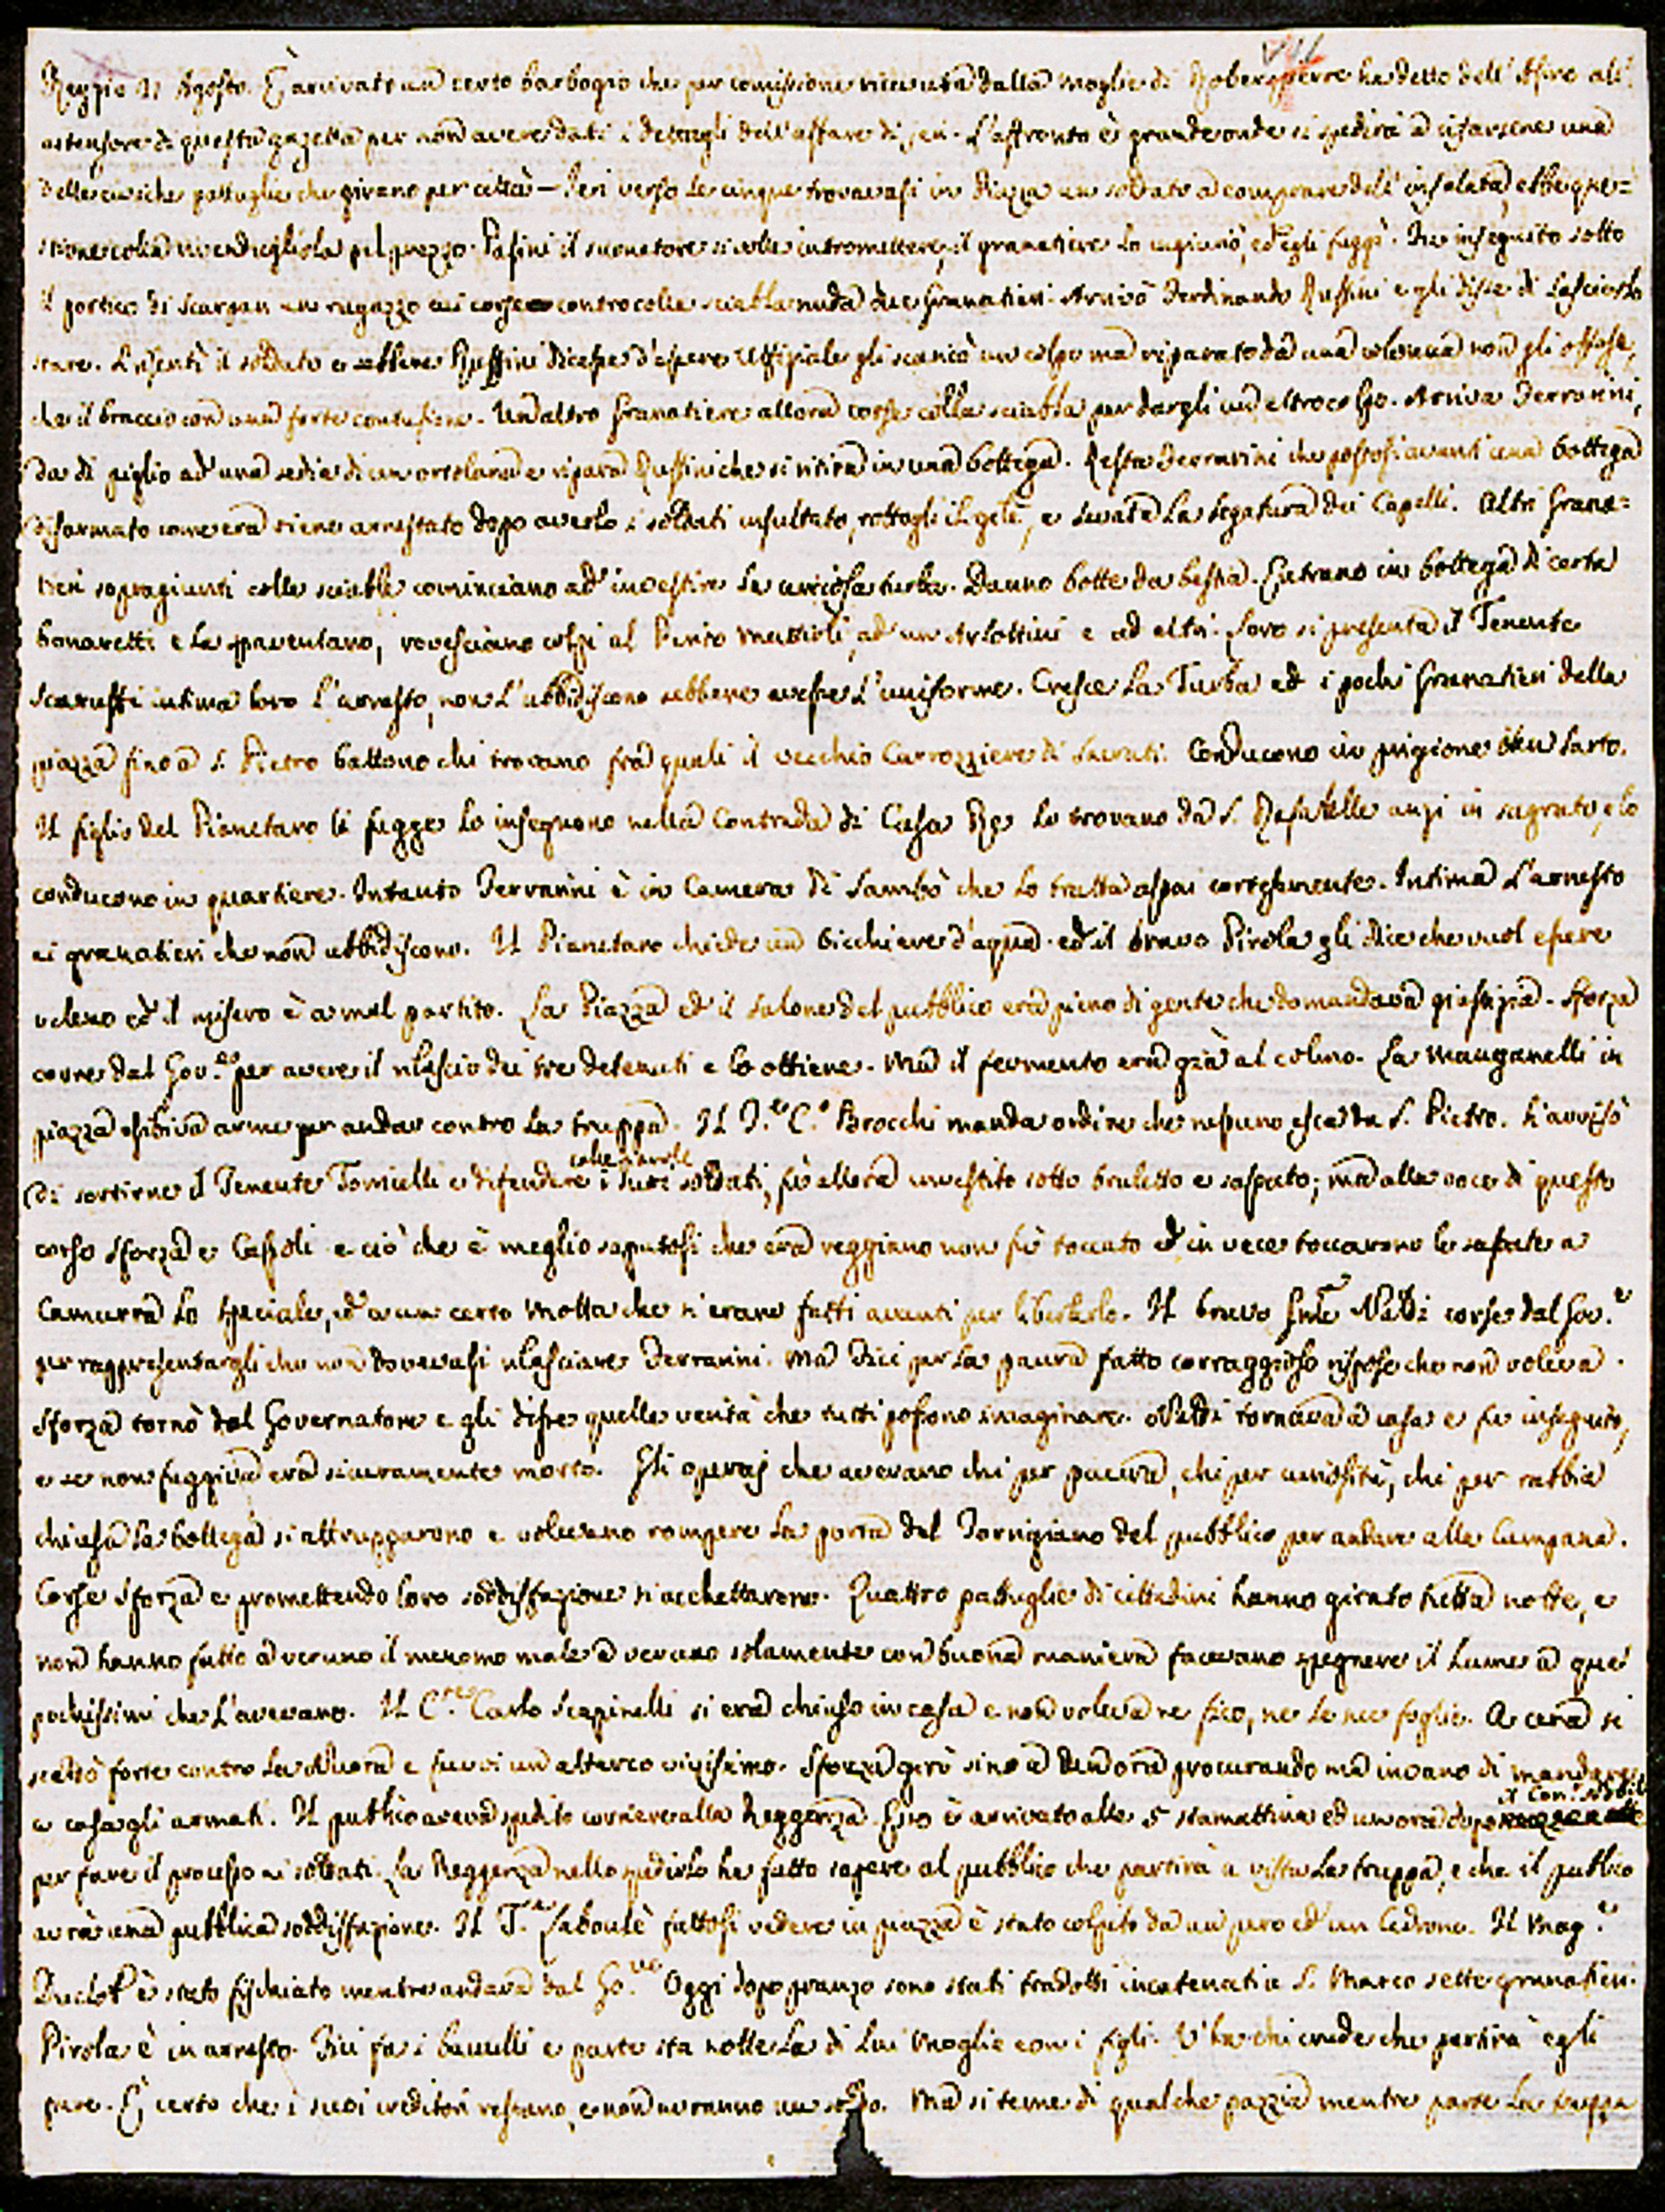 Reggio 21 Agosto. È arrivato un certo barbogio che per comissione ricevuta dalla moglie di Roberspierre ha detto dell'Asino all'
estensore di questa gazetta per non avere dati i dettagli dell'affare di jeri. L'affronto è grande onde si spedirà a rifarsene una
delle civiche pattuglie che girano per città — Jeri verso le cinque trovavasi in Piazza un soldato a comprare dell'insalata, ebbe que=
stione colla rivendugliola pel prezzo. Pasini il suonatore si volle intromettere, il granatiere lo ingiuriò, ed egli fuggì. Fu inseguito sotto
il portico di Scargan un ragazzo cui corse contro colla sciabla nuda due Granatieri. Arrivò Ferdinando Ruffini e gli disse di lasciarlo
stare. Risentì il soldato e sebbene Ruffini dicesse d'essere Uffiziale gli scaricò un colpo ma riparato da una colonna non gli offese,
che il braccio con una forte contusione. Un altro Granatiere allora corse colla sciabla per dargli un altro colpo. Arriva Ferrarini,
da di piglio ad una sedia di un ortolano e ripara Ruffini che si ritira in una bottega. Resta Ferrarini che postosi avanti una bottega
disarmato come era viene arrestato dopo averlo i soldati insultato, rottogli il gilè, e levata la legatura dei Capelli. Altri Grana=
tieri sopragiunti colle sciable cominciano ad investire la curiosa turba. Danno botte da bestia. Entrano in bottega di certa
Bonaretti e la spaventano, rovesciano colpi al Perito Mattioli, ad un Arlottini e ad altri. Loro si presenta il Tenente
Scaruffi intima loro l'arresto, non l'ubbidiscono sebbene avesse l'uniforme. Cresce la Turba ed i pochi Granatieri della
piazza fino a S. Pietro battono chi trovano fra quali il vecchio Carrozziere di Sacrati. Conducono in prigione un Sarto.
Il figlio del Pianetaro li fugge lo inseguono nella Contrada di Casa Re lo trovano da S. Rafaelle anzi in sagrato, e lo
conducono in quartiere. Intanto Ferrarini è in Camera di Sambò che lo tratta assai cortesemente. Intima l'arresto
ai granatieri che non ubbidiscono. Il Pianetaro chiede un bicchiere d'aqua ed il bravo Pirola gli dice che vuol essere
veleno ed il misero è a mal partito. La Piazza ed il salone del pubblico era pieno di gente che domandava giustizia. Sforza
corre dal Gov.re per avere il rilascio dei tre detenuti e lo ottiene. Ma il fermento era già al colmo. La Manganelli in
piazza esibiva arme per andar contro la truppa. Il T.e C.o Brocchi manda ordine che nessuno esca da S. Pietro. S'avvisò
di sortirne il Tenente Tomielli e difendere colle parole i suoi soldati, fù allora investito sotto broletto e sassato; ma alla voce di questo
corso Sforza e Cassoli e ciò che è meglio saputosi che era reggiano non fù toccato ed in vece toccarono le sassate a
Camurra lo speciale, ed a un certo Motta che s'erano fatti avanti per liberlarlo. Il bravo Naldi corse dal Gov.e
per rappresentargli che non dovevasi rilasciare Ferrarini. Ma Dici per la paura fatto corraggioso rispose che non voleva.
Sforza tornò dal Governatore e gli disse quelle verità che tutti possono imaginare. Naldi tornava a casa e fu inseguito,
e se non fuggiva era sicuramente morto. Gli operaj che avevano chi per paura, chi per curiosità, chi per rabbia
chiusa la bottega si attrupparono e volevano rompere la porta del Torrigiano del pubblico per andare alla Campana.
Corse Sforza e promettendo loro soddisfazione si acchettarono. Quattro pattuglie di cittadini hanno girato tutta notte, e
non hanno fatto a veruno il menomo male a veruno solamente con buona maniera facevano spegnere il lume a que'
pochissimi che l'avevano. Il C.te Carlo Scapinelli si era chiuso in casa e non voleva ne fico, ne le sue foglie. A cena si
scaldò forte contro la Nuora e fuvvi un alterco vivissimo. Sforza girò sino a un ora procurando ma invano di mandare
a casa gli armati. Il publico aveva spedito corriere alla Reggenza. Esso è arrivato alle 5 stamattina ed un ora dopo il Con.
per fare il processo ai soldati. La Reggenza nello spedirlo ha fatto sapere al pubblico che partirà a vista la truppa, e che il publico
avrà una pubblica soddisfazione. Il T.e Laboulè fattosi vedere in piazza è stato colpito da un pero ed un Cedrone. Il Mag.e
Duclot è stato fischiato mentre andava dal Go.re Oggi dopo pranzo sono stati tradotti incatenati a S. Marco sette granatieri.
Pirola è in arresto. Dici fa i bauulli e parte sta notte la di lui Moglie con i figli. V'ha chi crede che partirà egli
pure. È certo che i suoi creditori restano, e non avranno un soldo. Ma si teme di qualche pazzia mentre parte la truppa